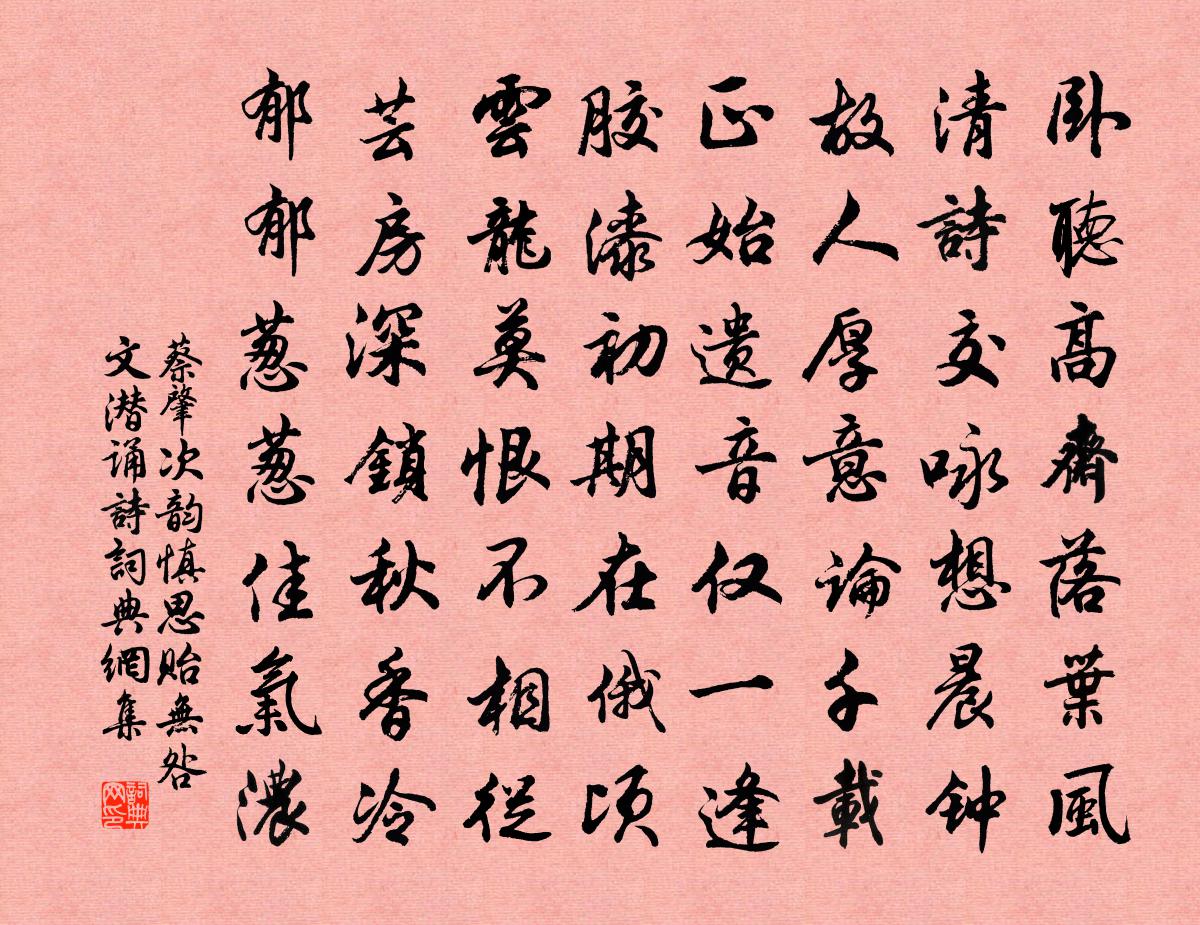 卧聽高齋落葉風
清詩交咏想晨钟
故人厚意論千載
正始遗音仅一逢
胶漆初期在俄顷
雲龍莫恨不相從
芸房深鎖秋香冷
郁郁葱葱佳氣濃
蔡肇次韵慎思貽無咎
文潜诵詩詞典網集
詞典
网印